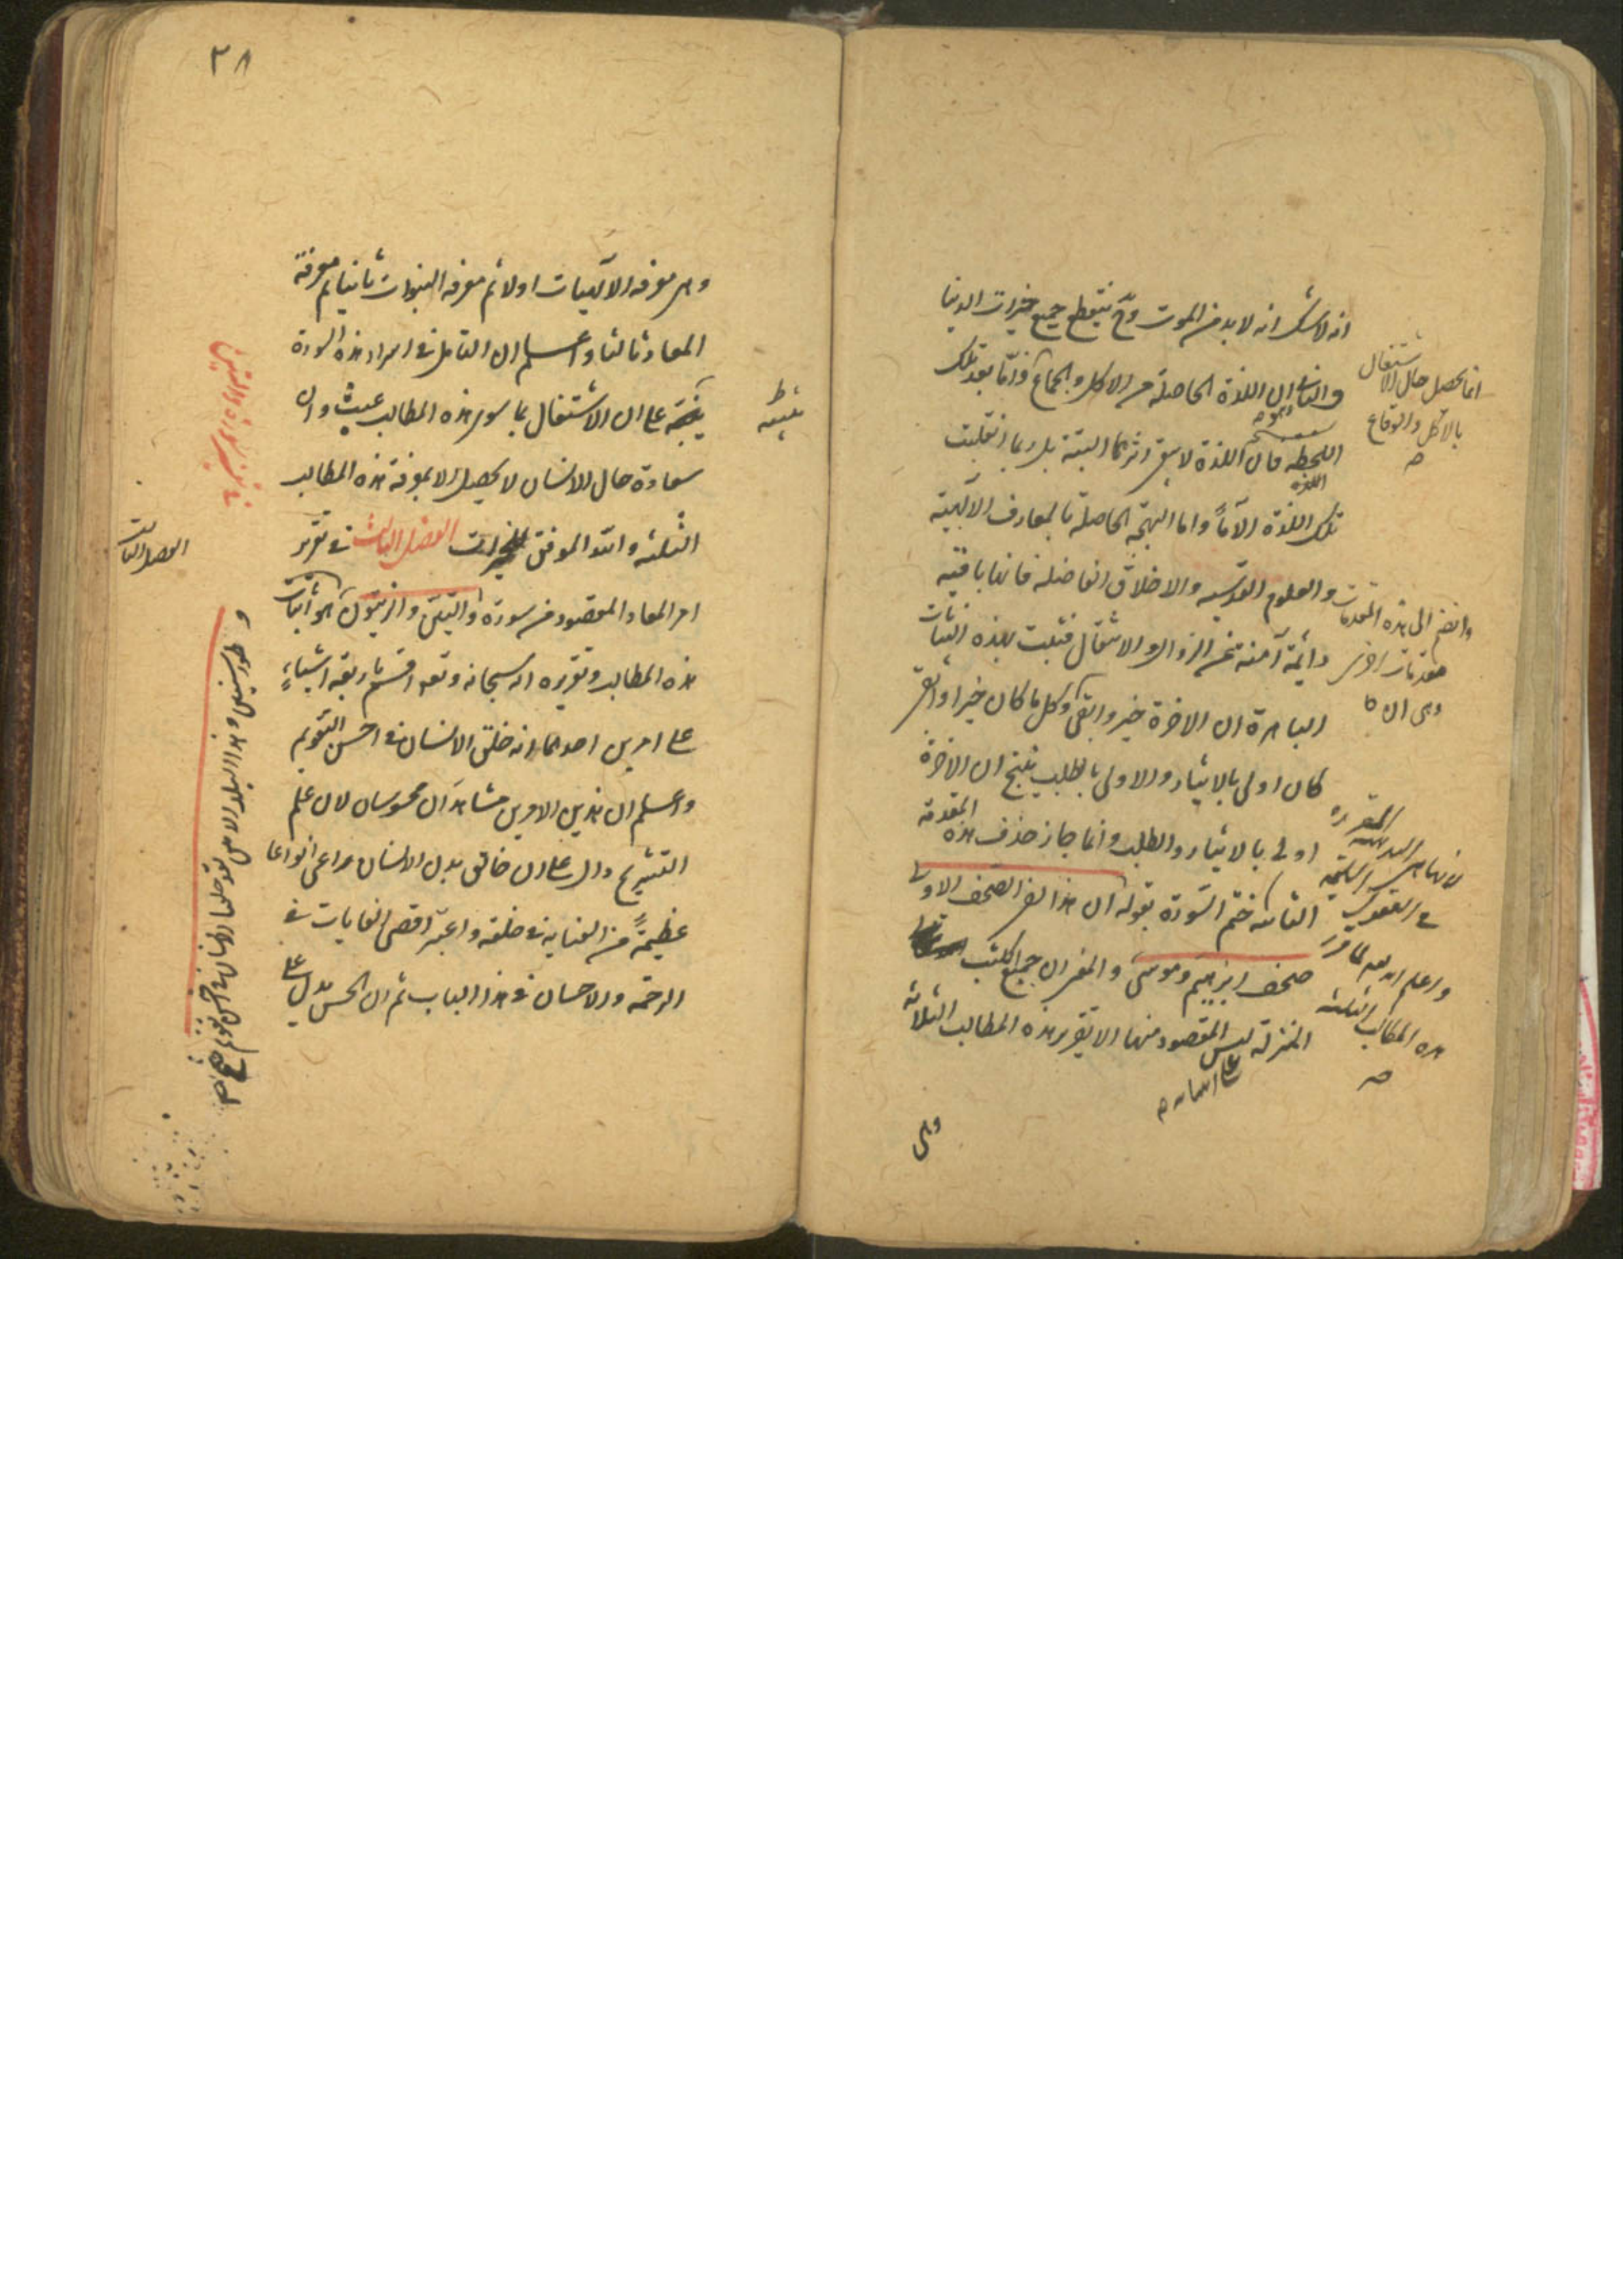 انه لا شك انه لا بد من الموت وح ينقطع جميع خيرات الدنيا
والثانى ان اللذة الحاصلة من الاكل والجماع فاما بعد تلك
اللحظة فان اللذة لا يبقى اثرها البتة بل ربما انقلبت
تلك اللذة الآماً واما البهجة الحاصلة بالمعارف الآلهية
والعلوم القدسية والاخلاق الفاضلة فانها باقية
دائمة آمنة من الزوال والانتقال فثبت بهذه البينات
الباهرة ان الاخرة خير وابقى وكل ما كان خيرا وابقى
كان اولى بالايثار والاولى بالطلب ينتج ان الاخرة
اولى بالايثار والطلب وانما جاز حذف هذه المقدمة
ختم السورة بقوله ان هذا لفى الصحف الاولى
صحف ابرهيم وموسى والمعنى ان جميع الكتب
المنزلة ليس المقصود منها الا تقرير هذه المطالب الثلاثة
وهى
انما يحصل حال الاشتغال
بالاكل والوقاع
وانضم الى هذه المقدمات
مقدمات اخرى
وهى ان
فى العقول
واعلم انه تعالى لما قرر
هذه المطالب الثلثة
٣٨
وهى معرفة الآلهيات اولا ثم معرفة النبوات ثانيا ثم معرفة
المعاد ثالثا واعلم ان التامل فى اسرار هذه السورة
ينبه على ان الاشتغال بما سوى هذه المطالب عبث وان
سعادة حال الانسان لا يحصل الا بمعرفة هذه المطالب
الثلثة والله الموفق للخيرات الفصل الثالث فى تقرير
امر المعاد المقصود من سورة والتين والزيتون هو اثبات
هذه المطالب وتقريره انه سبحانه وتعالى اقسم باربعة اشياء
على امرين احدهما انه خلق الانسان فى احسن التقويم
واعلم ان هذين الامرين مشاهدان محسوسان لان علم
التشريح دال على ان خالق بدن الانسان راعى انواعا
عظيمة من العناية فى خلقه واعتبر اقصى الغايات فى
الرحمة والاحسان فى هذا الباب ثم ان الحس يدل على
الفصل الثالث
وطور سينين وهذا البلد الامين لقد خلقنا الانسان فى احسن تقويم